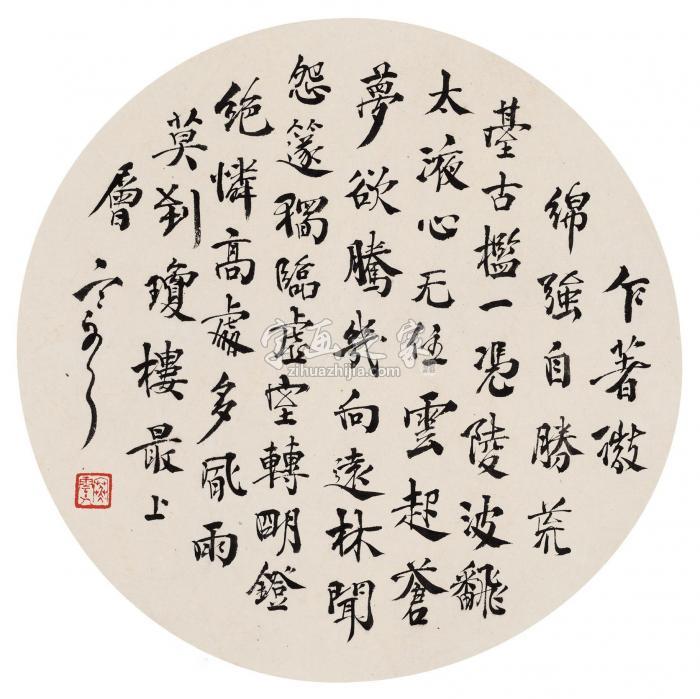 乍著微
綿強自勝荒
臺古檻一憑陵波飜
太液心无住雲起蒼
夢欲騰幾向遠林聞
怨篴獨臨虛室轉明鐙
絕憐高處多風雨
莫到瓊樓最上
層
字画之家
zihuazhijia.com